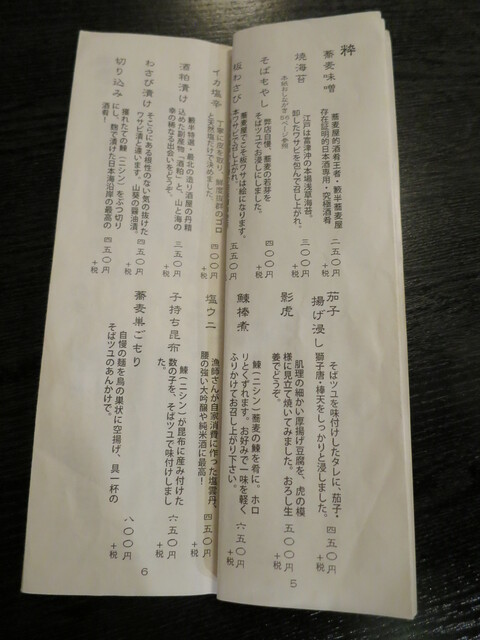 粋
蕎麦味噌
蕎麦屋的酒肴王者・藪半蕎麦屋
存在証明的日本酒専用・究極酒肴
二五〇円
+税
焼海苔
江戸は富津沖の本場浅草海苔。
卸したワサビを包んで召し上がれ。
三〇〇円
+税
そばもやし
弊店自慢、蕎麦の若芽を
そばツユでお浸しにしました。
四〇〇円
+税
板わさび
蕎麦屋でこそ板ワサは絵になります。
本ワサビで召し上がれ。
五五〇円
+税
茄子
揚げ浸し
そばツユを味付けしたタレに、茄子・
獅子唐・棒天をしっかりと浸しました。
四五〇円
+税
影虎
肌理の細かい厚揚げ豆腐を、虎の模
様に見立て焼いてみました。おろし生
姜でどうぞ。
五〇〇円
+税
鰊棒煮
鰊(ニシン)蕎麦の鰊を肴に。ホロ
リとくずれます。お好みで一味を軽く
ふりかけてお召し上がり下さい。
六五〇円
+税
5
イカ塩辛
丁寧に皮を取り、鮮度抜群のゴロ
と天然塩だけで決めました。
四五〇円
+税
酒粕漬け
藪半特選・最北の造り酒屋の丹精
込めた副産物「酒粕」と、山と海の
幸の稀なる出会いをどうぞ。
三五〇円
+税
わさび漬け
そこらにある根性のない気の抜けた
ワサビ漬と違います。山葵の醤油漬。
四五〇円
+税
切り込み
獲れたての鰊(ニシン)をぶつ切り
にし、麹で漬けた日本海沿岸の最高の
酒肴!
四五〇円
+税
塩ウニ
漁師さんが自家消費に作った塩雲丹、
腰の強い大吟醸や純米酒に最高!
四五〇円
+税
子持ち昆布
鰊(ニシン)が昆布に産み付けた
数の子を、そばツユで味付けしまし
た。
六五〇円
+税
蕎麦巣ごもり
自慢の麺を鳥の巣状に空揚げ、具一杯の
そばツユのあんかけで。
八〇〇円
+税
6